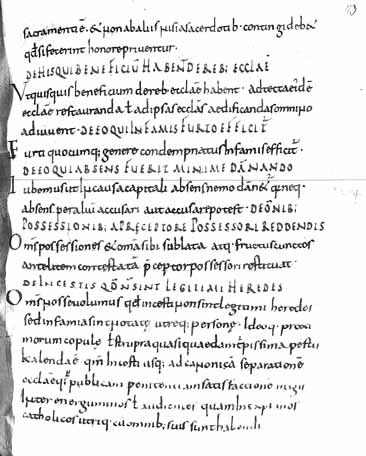 sacramentū. & non ab aliis nisi a sacerdotib. contingi deb&
qd si fecerint honore priventur.
DE HIS QUI BENEFICIŪ HABENT DE REB; ECCLAE
Ut quisquis beneficium de reb. ecclae habent. ad tecta eidē
ecclae restauranda t ad ipsas ecclas aedificandas omnimo
adiuvent. DE EO QUI INFAMIS FURTO EFFICIT
Furti quocunq; genere condempnatus infamis efficit.
DE EO QUI ABSENS FUERIT MINIME DANANDO
Iubemus ut in causa capitali absens nemo dānet. neq.
absens per alium accusari aut accusare potest. DE OMNIB;
POSSESSIONIB; A PRECEPTORE POSSESSORI REDDENDIS
Oms possessiones & om̄a sibi sublata atq. fructus cunctos
ante litem contestatā preceptor possessori restituat.
DE INCESTIS QD NON SINT LEGITIMI HEREDES
Om̄s nosse volumus qd incesti non sint legitimi heredes
sed infamia sint notati utreq; persone. Ideoq. proxi
morum copulȩ t stupra quasi quaedam pessima pestis
kalendae
incesti usq; ad canonicā separationē
ecclae publicam penitentiam satisfaccione
Inter energuminos t audientes quam inter xpianos
catholicos utriq. cum omnib; suis sunt habendi